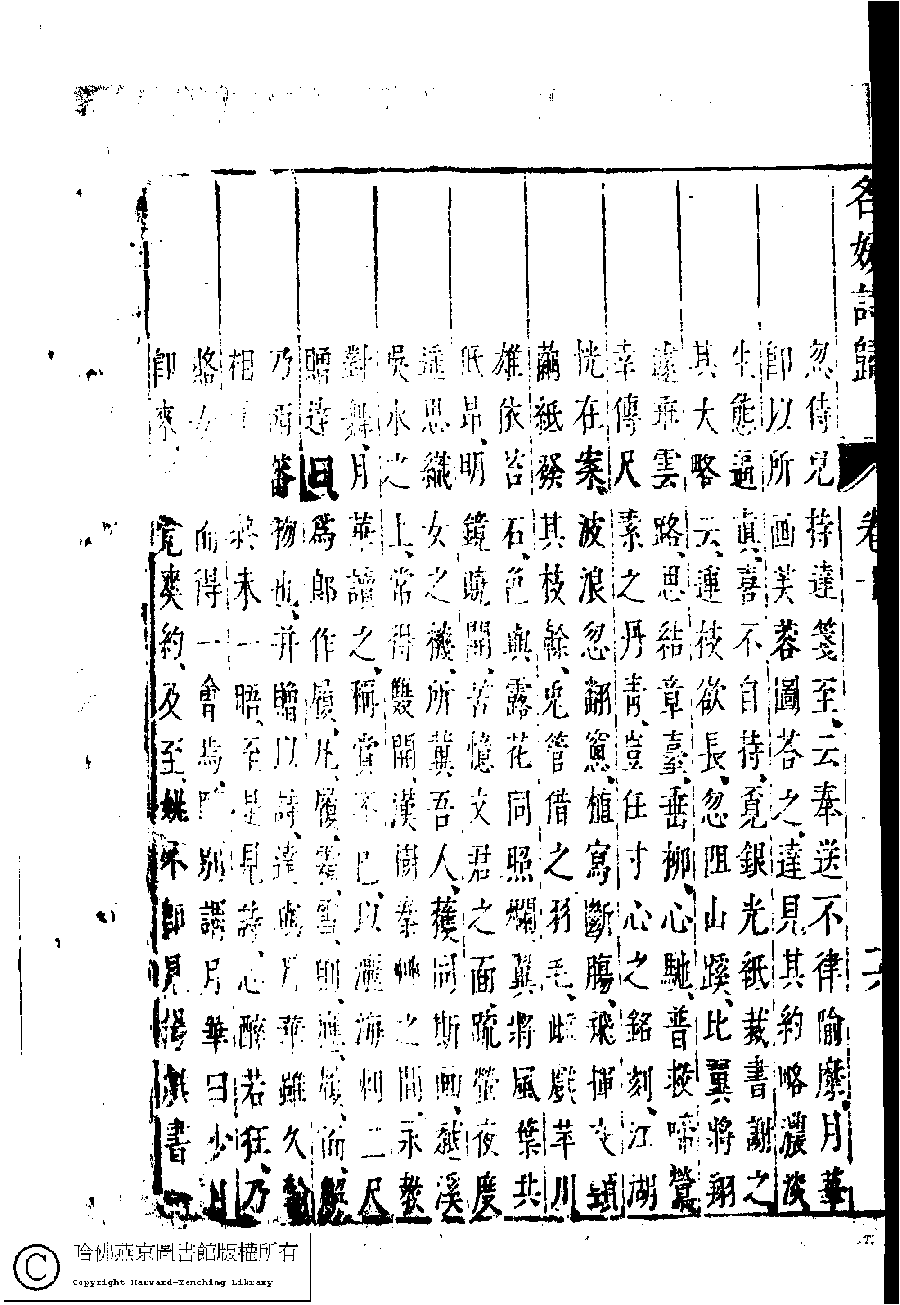 名媛詩歸 卷 六
忽侍兒持達箋至、云奉送不律隃糜、月華
卽以所画芙蓉圖荅之、達見其約略濃淡
生態逼眞、喜不自持、覓銀光紙裁書謝之
其大略云、連枝欲長、忽阻山蹊、比翼將翔
遽乖雲路、思結章臺、垂柳心馳、普救啼鶯
幸傳尺素之丹青、豈任寸心之銘刻、江湖
恍在案、波浪忽翻窻、植寫斷腸、飛揮文頴
繭紙發其枝榦、兎管借之羽毛、戲苹川
雄依苔石、色與露花同照爛、翼將風葉共
低昂、明鏡曉開、苦憶文君之面、疏螢夜度
遥思織女之機、所冀吾人、獲同斯画、越溪
吳水之上、常得雙開、漢樹秦艸之間、永教
對舞、月華讀之、稱賞不已、以灑海刺二尺
贈達曰爲郎作履、凡履霜雪、則應履而解
乃西蕃物也、并贈以詩、達與月華雖久
相將未一晤、至是見詩、心醉若狂、乃
賂女而得一會焉、旣别謂月華曰少
卽來竟爽約、及至、姚不卽見書
哈佛燕京圖書館版權所有
Copyright Harvard-Yenching Library